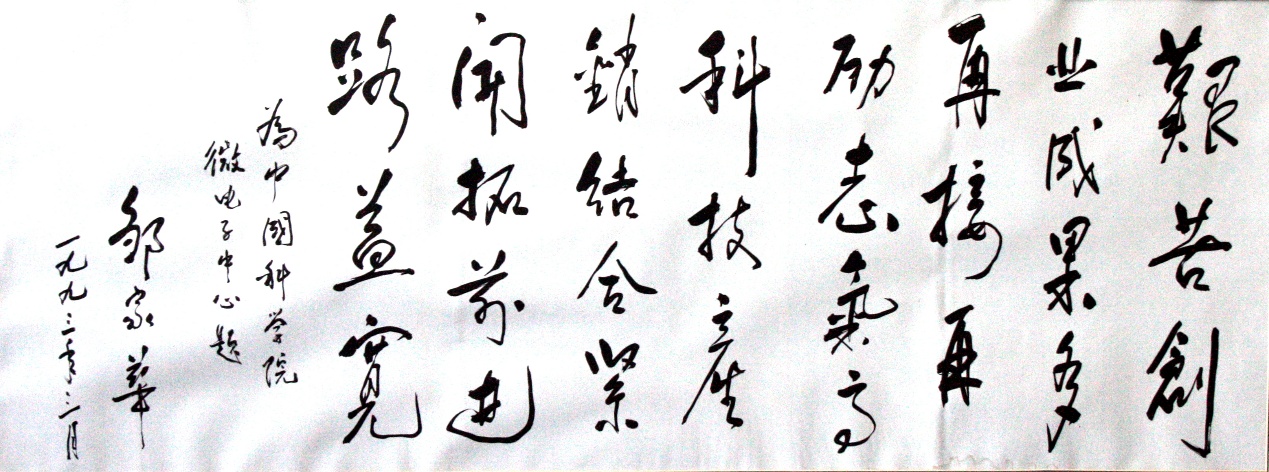 艱苦創
业成果多
再接再
励志氣高
科技産
銷結合緊
開拓前進
路益寬
為中國科学院
微电子中心題
邹家華
一九九三年三月